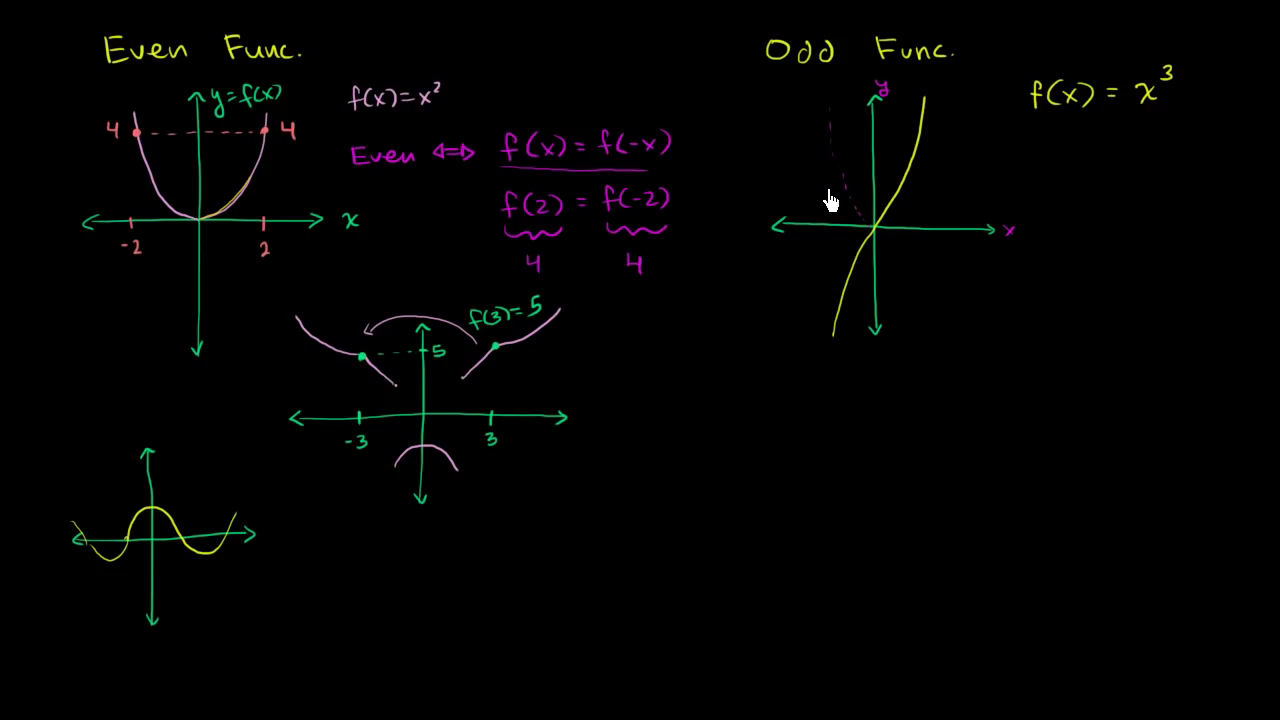 Even Func.
y=f(x)
4
4
-2
2
x
f(x)=x²
Even ⟺ f(x)=f(-x)
f(2)=f(-2)
4 4
f(3)=5
5
-3
3
Odd Func.
y
x
f(x) = x³